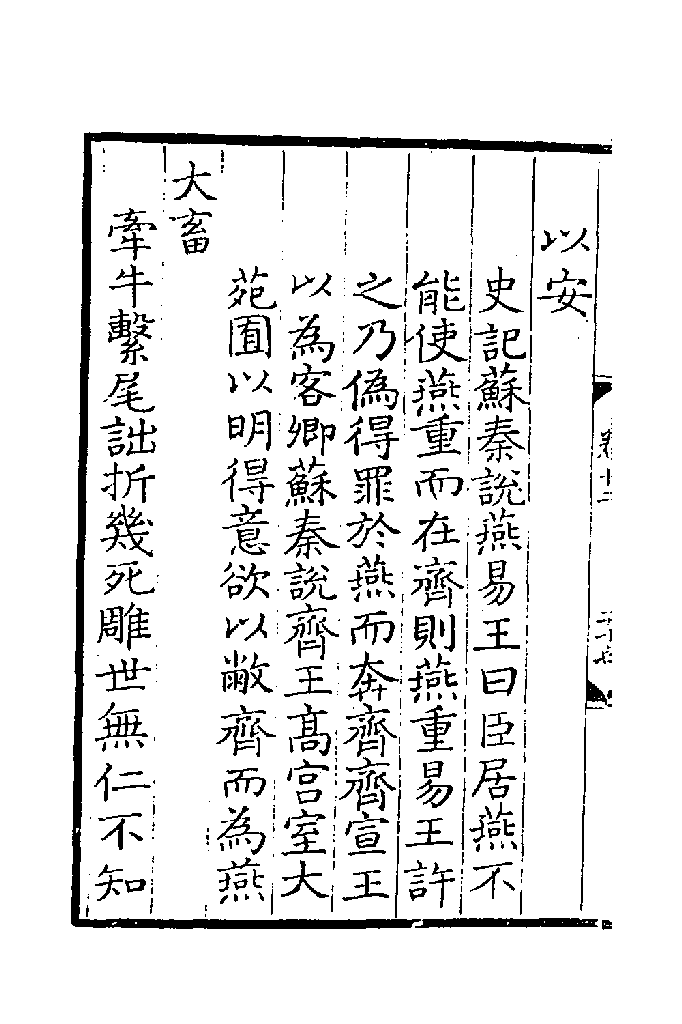 以安
史記蘇秦說燕易王曰臣居燕不
能使燕重而在齊則燕重易王許
之乃偽得罪於燕而奔齊齊宣王
以為客卿蘇秦說齊王高宮室大
苑囿以明得意欲以敝齊而為燕
大畜
牽牛繫尾詘折幾死雕世無仁不知